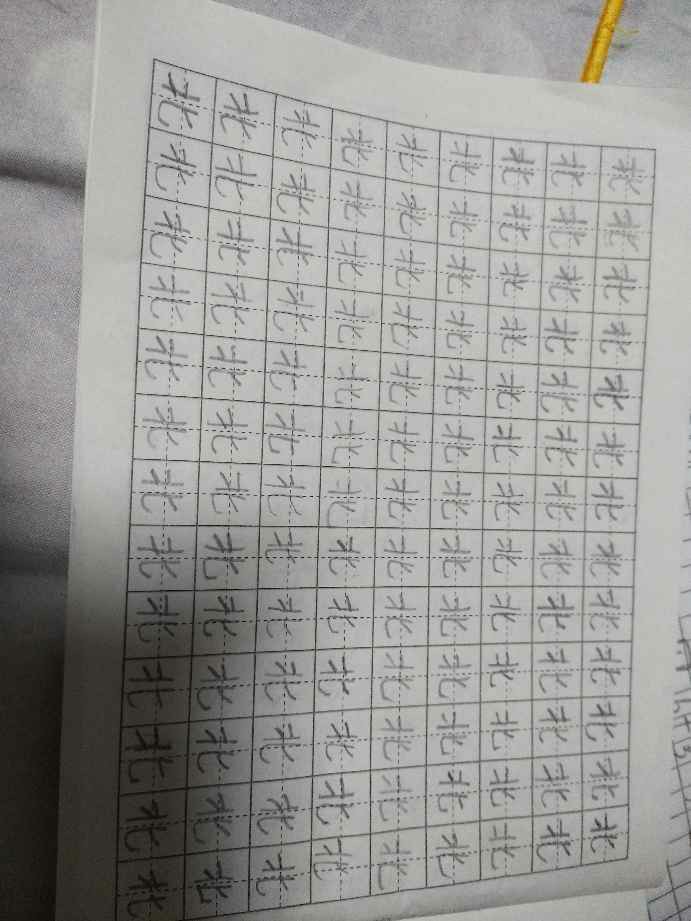 北北北北北北北北北北北北北
北北北北北北北北北北北北北
北北北北北北北北北北北北北
北北北北北北北北北北北北北
北北北北北北北北北北北北北
北北北北北北北北北北北北北
北北北北北北北北北北北北北
北北北北北北北北北北北北北
北北北北北北北北北北北北北